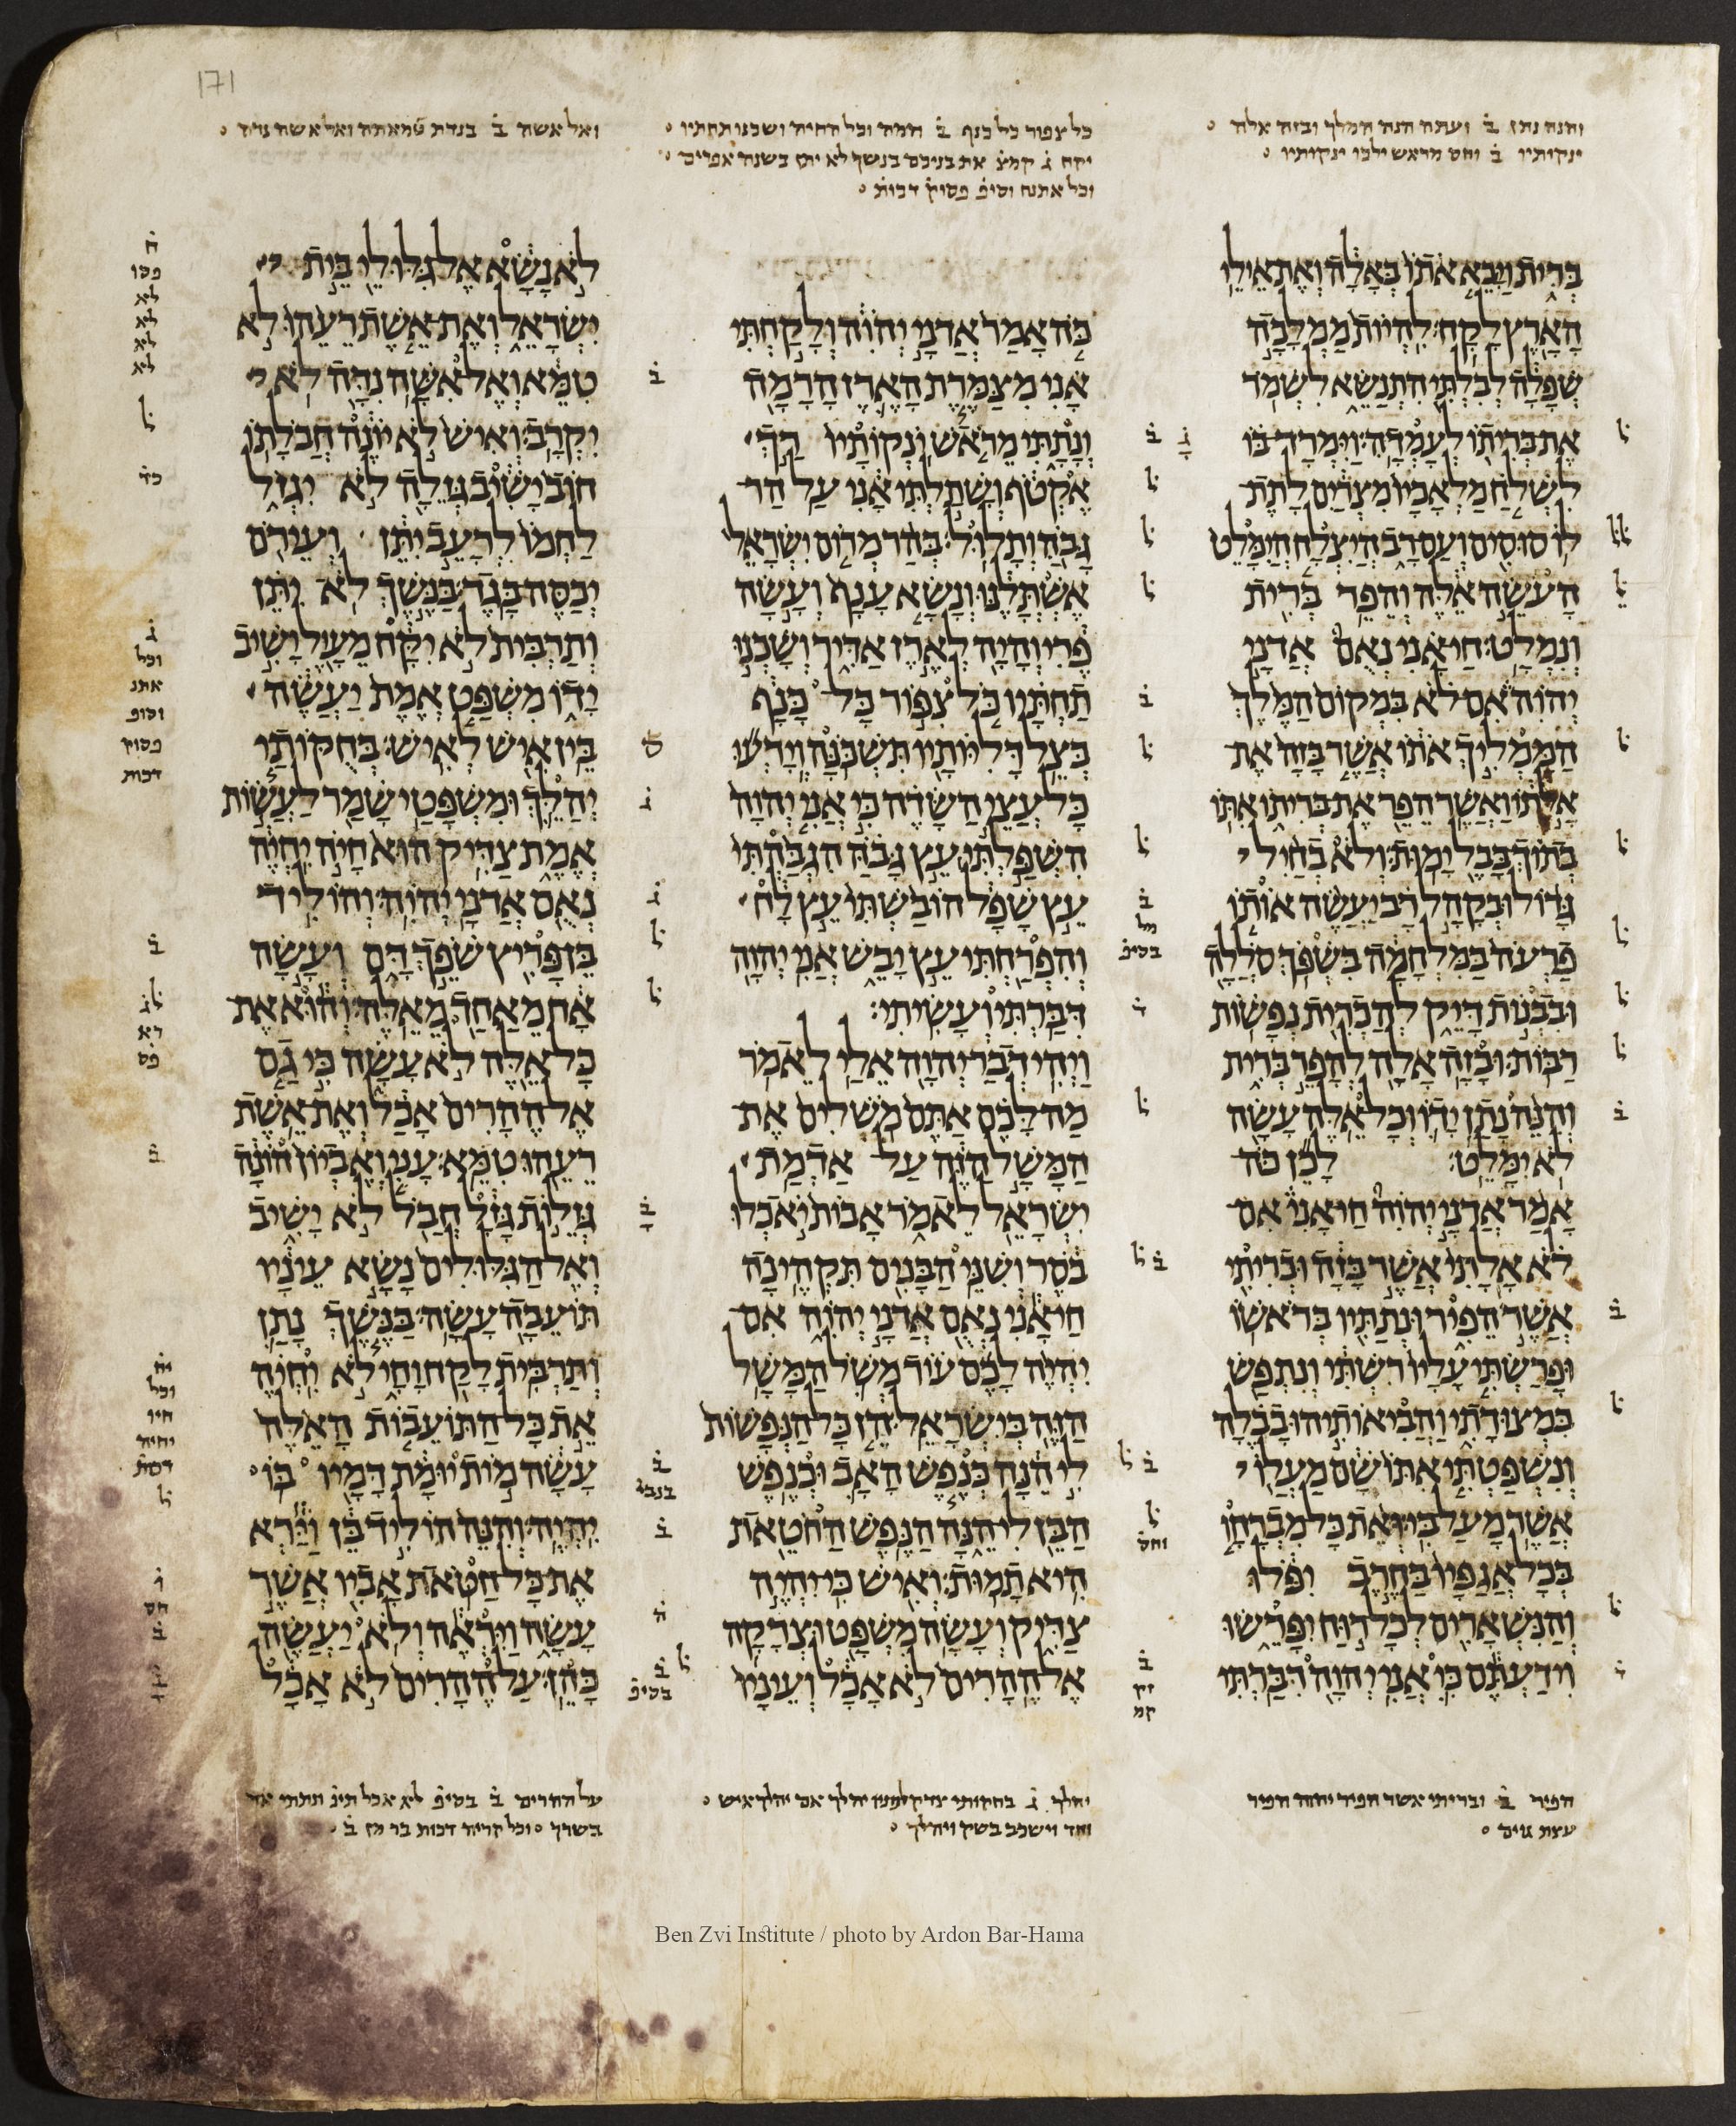 171
והנה נתן ב ועתה הנה המלך ובזה אלה
ינקותיו ב וחס מראש ילכו ינקותיו
כל צפור כל כנף ב חמה וכל החיה ושכנו תחתיו
יקח ג קמצ את בניכם בנשך לא יתן בשנה אפרים
וכל אתנח וסופ פסוק דכות
ואל אשה ב בנדת טמאתה ואל אשה נדה
ברית ויבא אתו באלה ואת אילי
הארץ לקח׃ להיות ממלכה
שפלה לבלתי התנשא לשמר
את בריתו לעמדה׃ וימרד בו
לשלח מלאכיו מצרים לתת
לו סוסים ועם רב היצלח הימלט
העשה אלה והפר ברית
ונמלט׃ חי אני נאם אדני
יהוה אם לא במקום המלך
הממליך אתו אשר בזה את
אלתו ואשר הפר את בריתו אתו
בתוך בבל ימות׃ ולא בחיל
גדול ובקהל רב יעשה אותו
פרעה במלחמה בשפך סללה
ובבנות דיק להכרית נפשות
רבות׃ ובזה אלה להפר ברית
והנה נתן ידו וכל אלה עשה
לא ימלט׃ לכן כה
אמר אדני יהוה חי אני אם
לא אלתי אשר בזה ובריתי
אשר הפיר ונתתיו בראשו
ופרשתי עליו רשתי ונתפש
במצודתי והביאותיהו בבלה
ונשפטתי אתו שם מעלו
אשר מעל בי׃ ואת כל מברחו
בכל אגפיו בחרב יפלו
והנשארים לכל רוח יפרשו
וידעתם כי אני יהוה דברתי
כה אמר אדני יהוה ולקחתי
אני מצמרת הארז הרמה
ונתתי מראש ינקותיו רך
אקטף ושתלתי אני על הר
גבה ותלול׃ בהר מרום ישראל
אשתלנו ונשא ענף ועשה
פרי והיה לארז אדיר ושכנו
תחתיו כל צפור כל כנף
בצל דליותיו תשכנה׃ וידעו
כל עצי השדה כי אני יהוה
השפלתי עץ גבה הגבהתי
עץ שפל הובשתי עץ לח
והפרחתי עץ יבש אני יהוה
דברתי ועשיתי׃
ויהי דבר יהוה אלי לאמר
מה לכם אתם משלים את
המשל הזה על אדמת
ישראל לאמר אבות יאכלו
בסר ושני הבנים תקהינה
חי אני נאם אדני יהוה אם
יהיה לכם עוד משל המשל
הזה בישראל׃ הן כל הנפשות
לי הנה כנפש האב וכנפש
הבן לי הנה הנפש החטאת
היא תמות׃ ואיש כי יהיה
צדיק ועשה משפט וצדקה
אל ההרים לא אכל ועיניו
לא נשא אל גלולי בית
ישראל ואת אשת רעהו לא
טמא ואל אשה נדה לא
יקרב׃ ואיש לא יונה חבלתו
חוב ישיב גזלה לא יגזל
לחמו לרעב יתן ועירם
יכסה בגד׃ בנשך לא יתן
ותרבית לא יקח מעול ישיב
ידו משפט אמת יעשה
בין איש לאיש׃ בחקותי
יהלך ומשפטי שמר לעשות
אמת צדיק הוא חיה יחיה
נאם אדני יהוה׃ והוליד
בן פריץ שפך דם ועשה
אח מאחד מאלה׃ והוא את
כל אלה לא עשה כי גם
אל ההרים אכל ואת אשת
רעהו טמא׃ עני ואביון הונה
גזלות גזל חבל לא ישיב
ואל הגלולים נשא עיניו
תועבה עשה׃ בנשך נתן
ותרבית לקח וחי לא יחיה
את כל התועבות האלה
עשה מות יומת דמיו בו
יהיה׃ והנה הוליד בן וירא
את כל חטאת אביו אשר
עשה ויראה ולא יעשה
כהן׃ על ההרים לא אכל
הפיר ב ובריתי אשר הפיר יהוה הפיר
עצת גוים
יהלך ג בחקותי צדק לפניו יהלך אם יהלך איש
וחד וישכב בשק ויהלך
על ההרים ב בסיפ לא אכל תינ ונתתי את
בשרך וכל קריה דכות בר מן ב
Ben Zvi Institute / photo by Ardon Bar-Hama